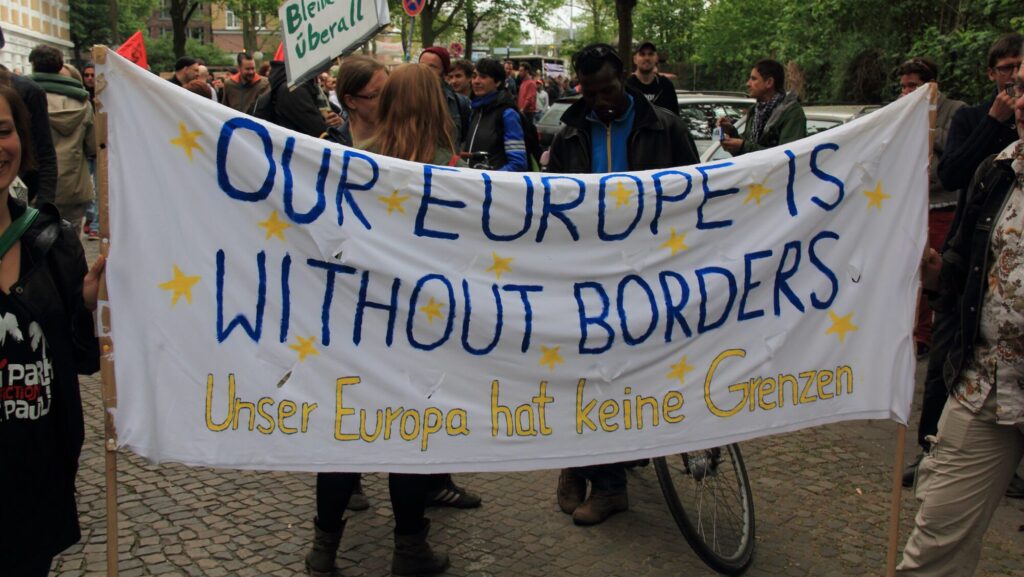 Bleibe
überall
OUR EUROPE IS
WITHOUT BORDERS
Unser Europa hat keine Grenzen
PARK
FICTION
PAULI